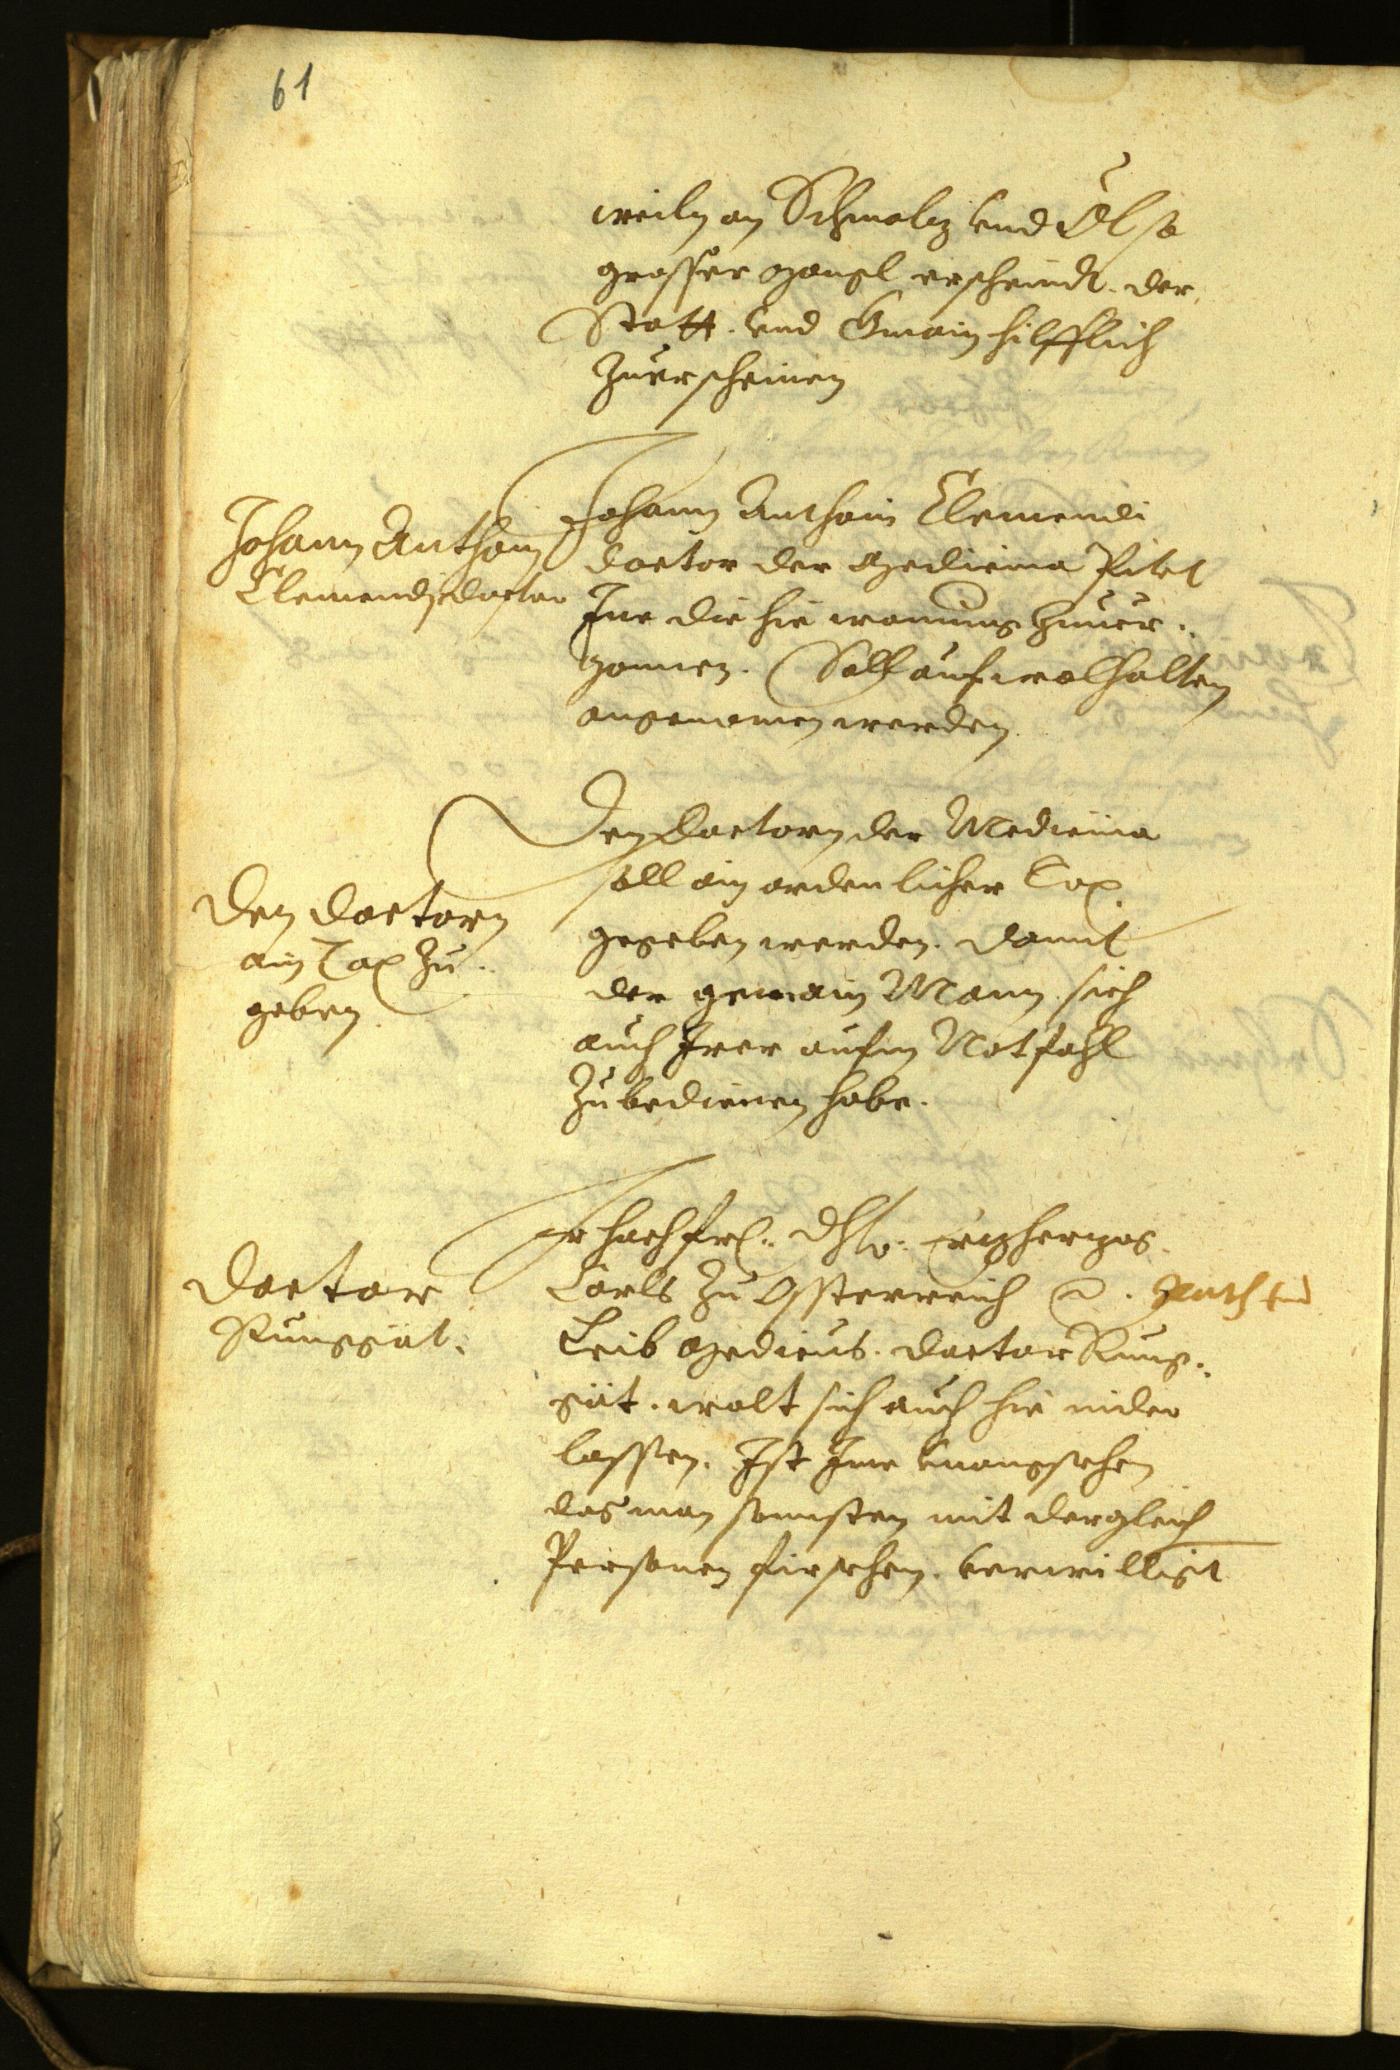 61
weiln an Schmalz vnd Öl so
grosser Mangl erscheindt. der
Statt. vnd Gmain hilfflich
zuerscheinen
Johann Anthoin
Clemendj doctor
Johann Anthoin Clemendi
doctor der Medicina Pitet
Ime die hie wonung zuuer¬
gonnen. Soll auf wolhalten
angenomen werden
Den doctorn
ain Tax zu
geben
Den Doctorn der Medicina
soll ain ordenlicher Tax
gegeben werden. damit
der gemain Mann sich
auch Irer auf in Notfahl
zubedienen habe.
Doctor
Runggüt.
Ir hochfrl: Dhlt: Erzherzog
Carls zu Össterreich &. Rath vnd
Leib Medicus. doctor Rung¬
güt. wolt sich auch hie nider
lassen. Ist Ime vnangesehen
das man sonnsten mit dergleich
Personen fürsehen. verwilligt